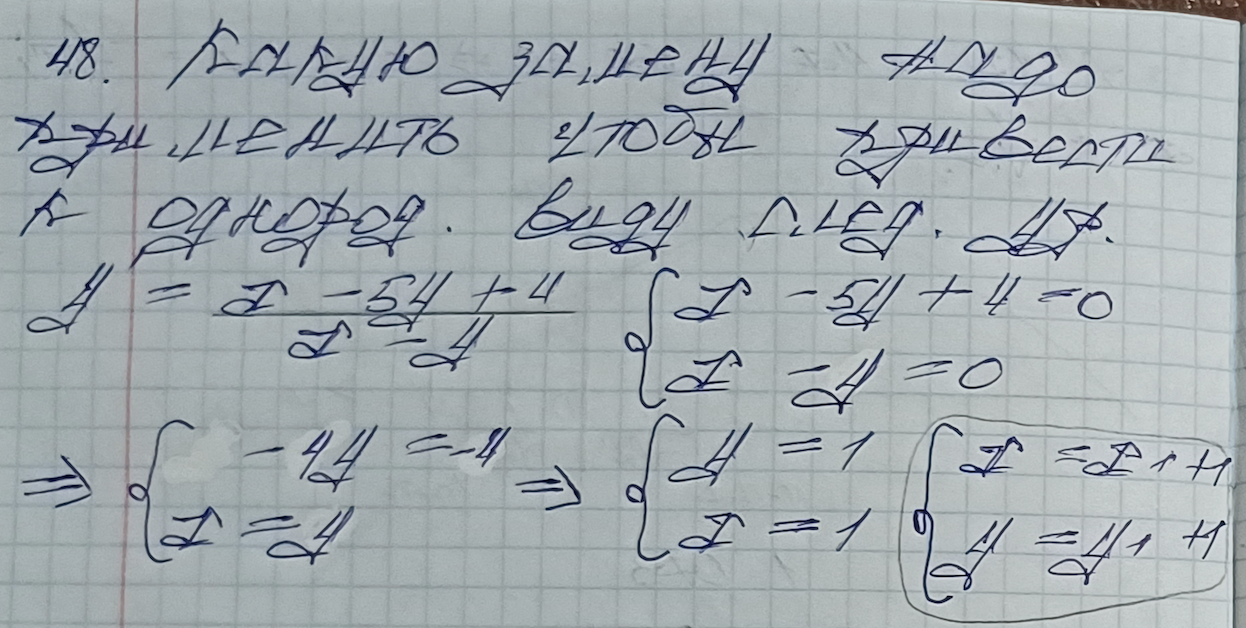 48. Какую замену надо
применить чтобы привести
к однород. виду след. ур.
y = x - 5y + 4 / x - y { x - 5y + 4 = 0
x - y = 0
⇒ { -4y = -4 ⇒ { y = 1 { x = x₁ + 1
x = y x = 1 y = y₁ + 1